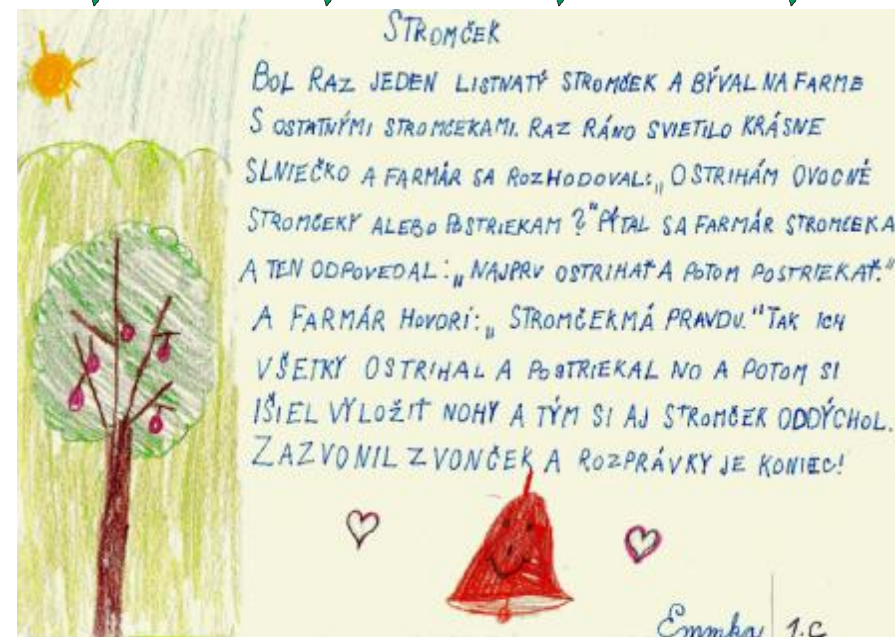 STROMČEK
BOL RAZ JEDEN LISTNATÝ STROMČEK A BÝVAL NA FARME
S OSTATNÝMI STROMČEKAMI. RAZ RÁNO SVIETILO KRÁSNE
SLNIEČKO A FARMÁR SA ROZHODOVAL: „OSTRIHÁM OVOCNÉ
STROMČEKY ALEBO POSTRIEKAM?" PÝTAL SA FARMÁR STROMČEKA
A TEN ODPOVEDAL: „NAJPRV OSTRIHAŤ A POTOM POSTRIEKAŤ."
A FARMÁR HOVORÍ: „STROMČEK MÁ PRAVDU." TAK ICH
VŠETKY OSTRIHAL A POSTRIEKAL NO A POTOM SI
IŠIEL VYLOŽIŤ NOHY A TÝM SI AJ STROMČEK ODDÝCHOL.
ZAZVONIL ZVONČEK A ROZPRÁVKY JE KONIEC!
Emmka 1.C